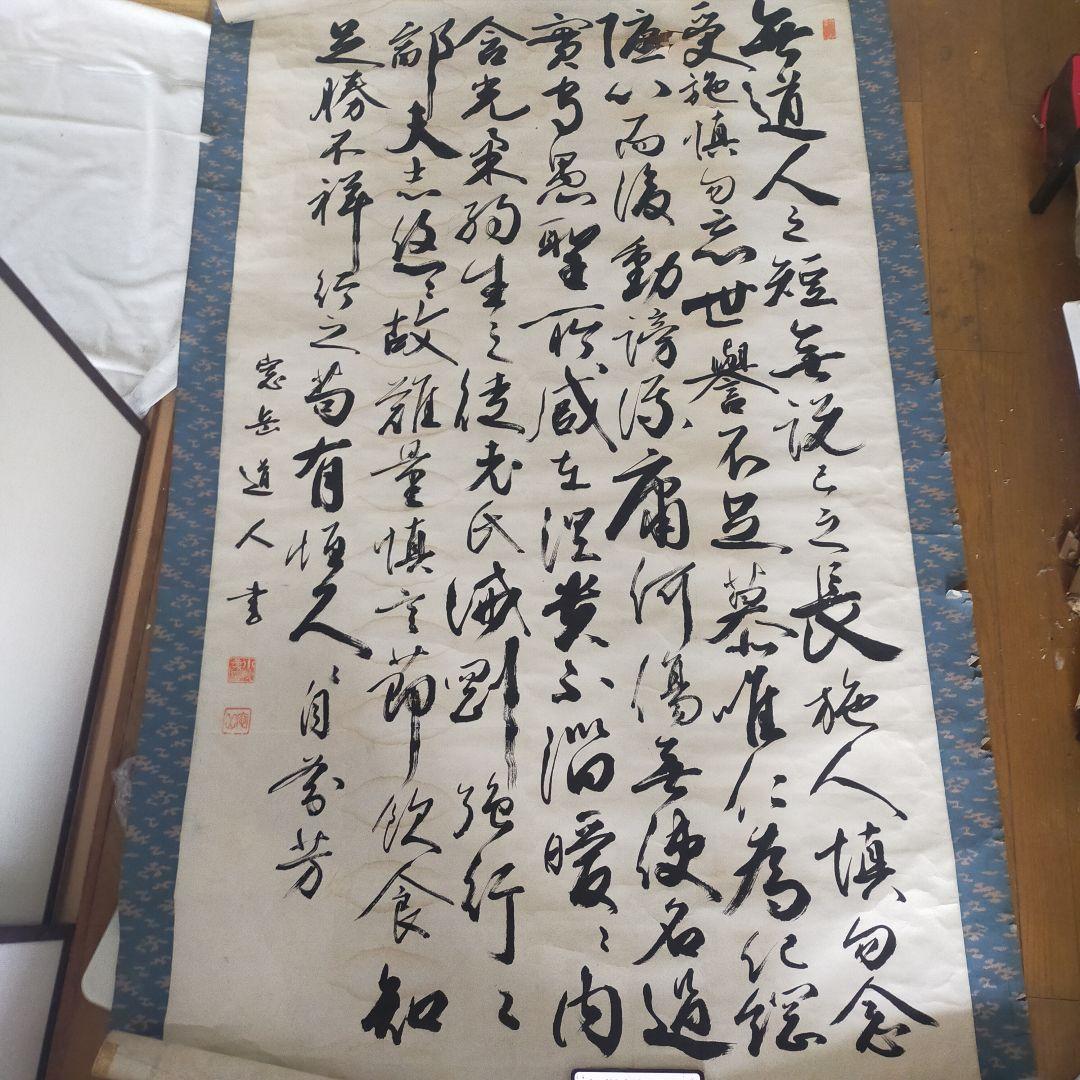 無道人之短無説己之長施人慎勿念
受施慎勿忘世譽不足慕唯仁為紀綱
隱心而後動謗議庸何傷無使名過
實守愚聖所臧在涅貴不淄曖〻内
含光柔弱生之徒老氏誡剛強行〻
鄙夫志悠〻故難量慎言節飲食知
足勝不祥行之苟有恒久〻自芬芳
岳道人書